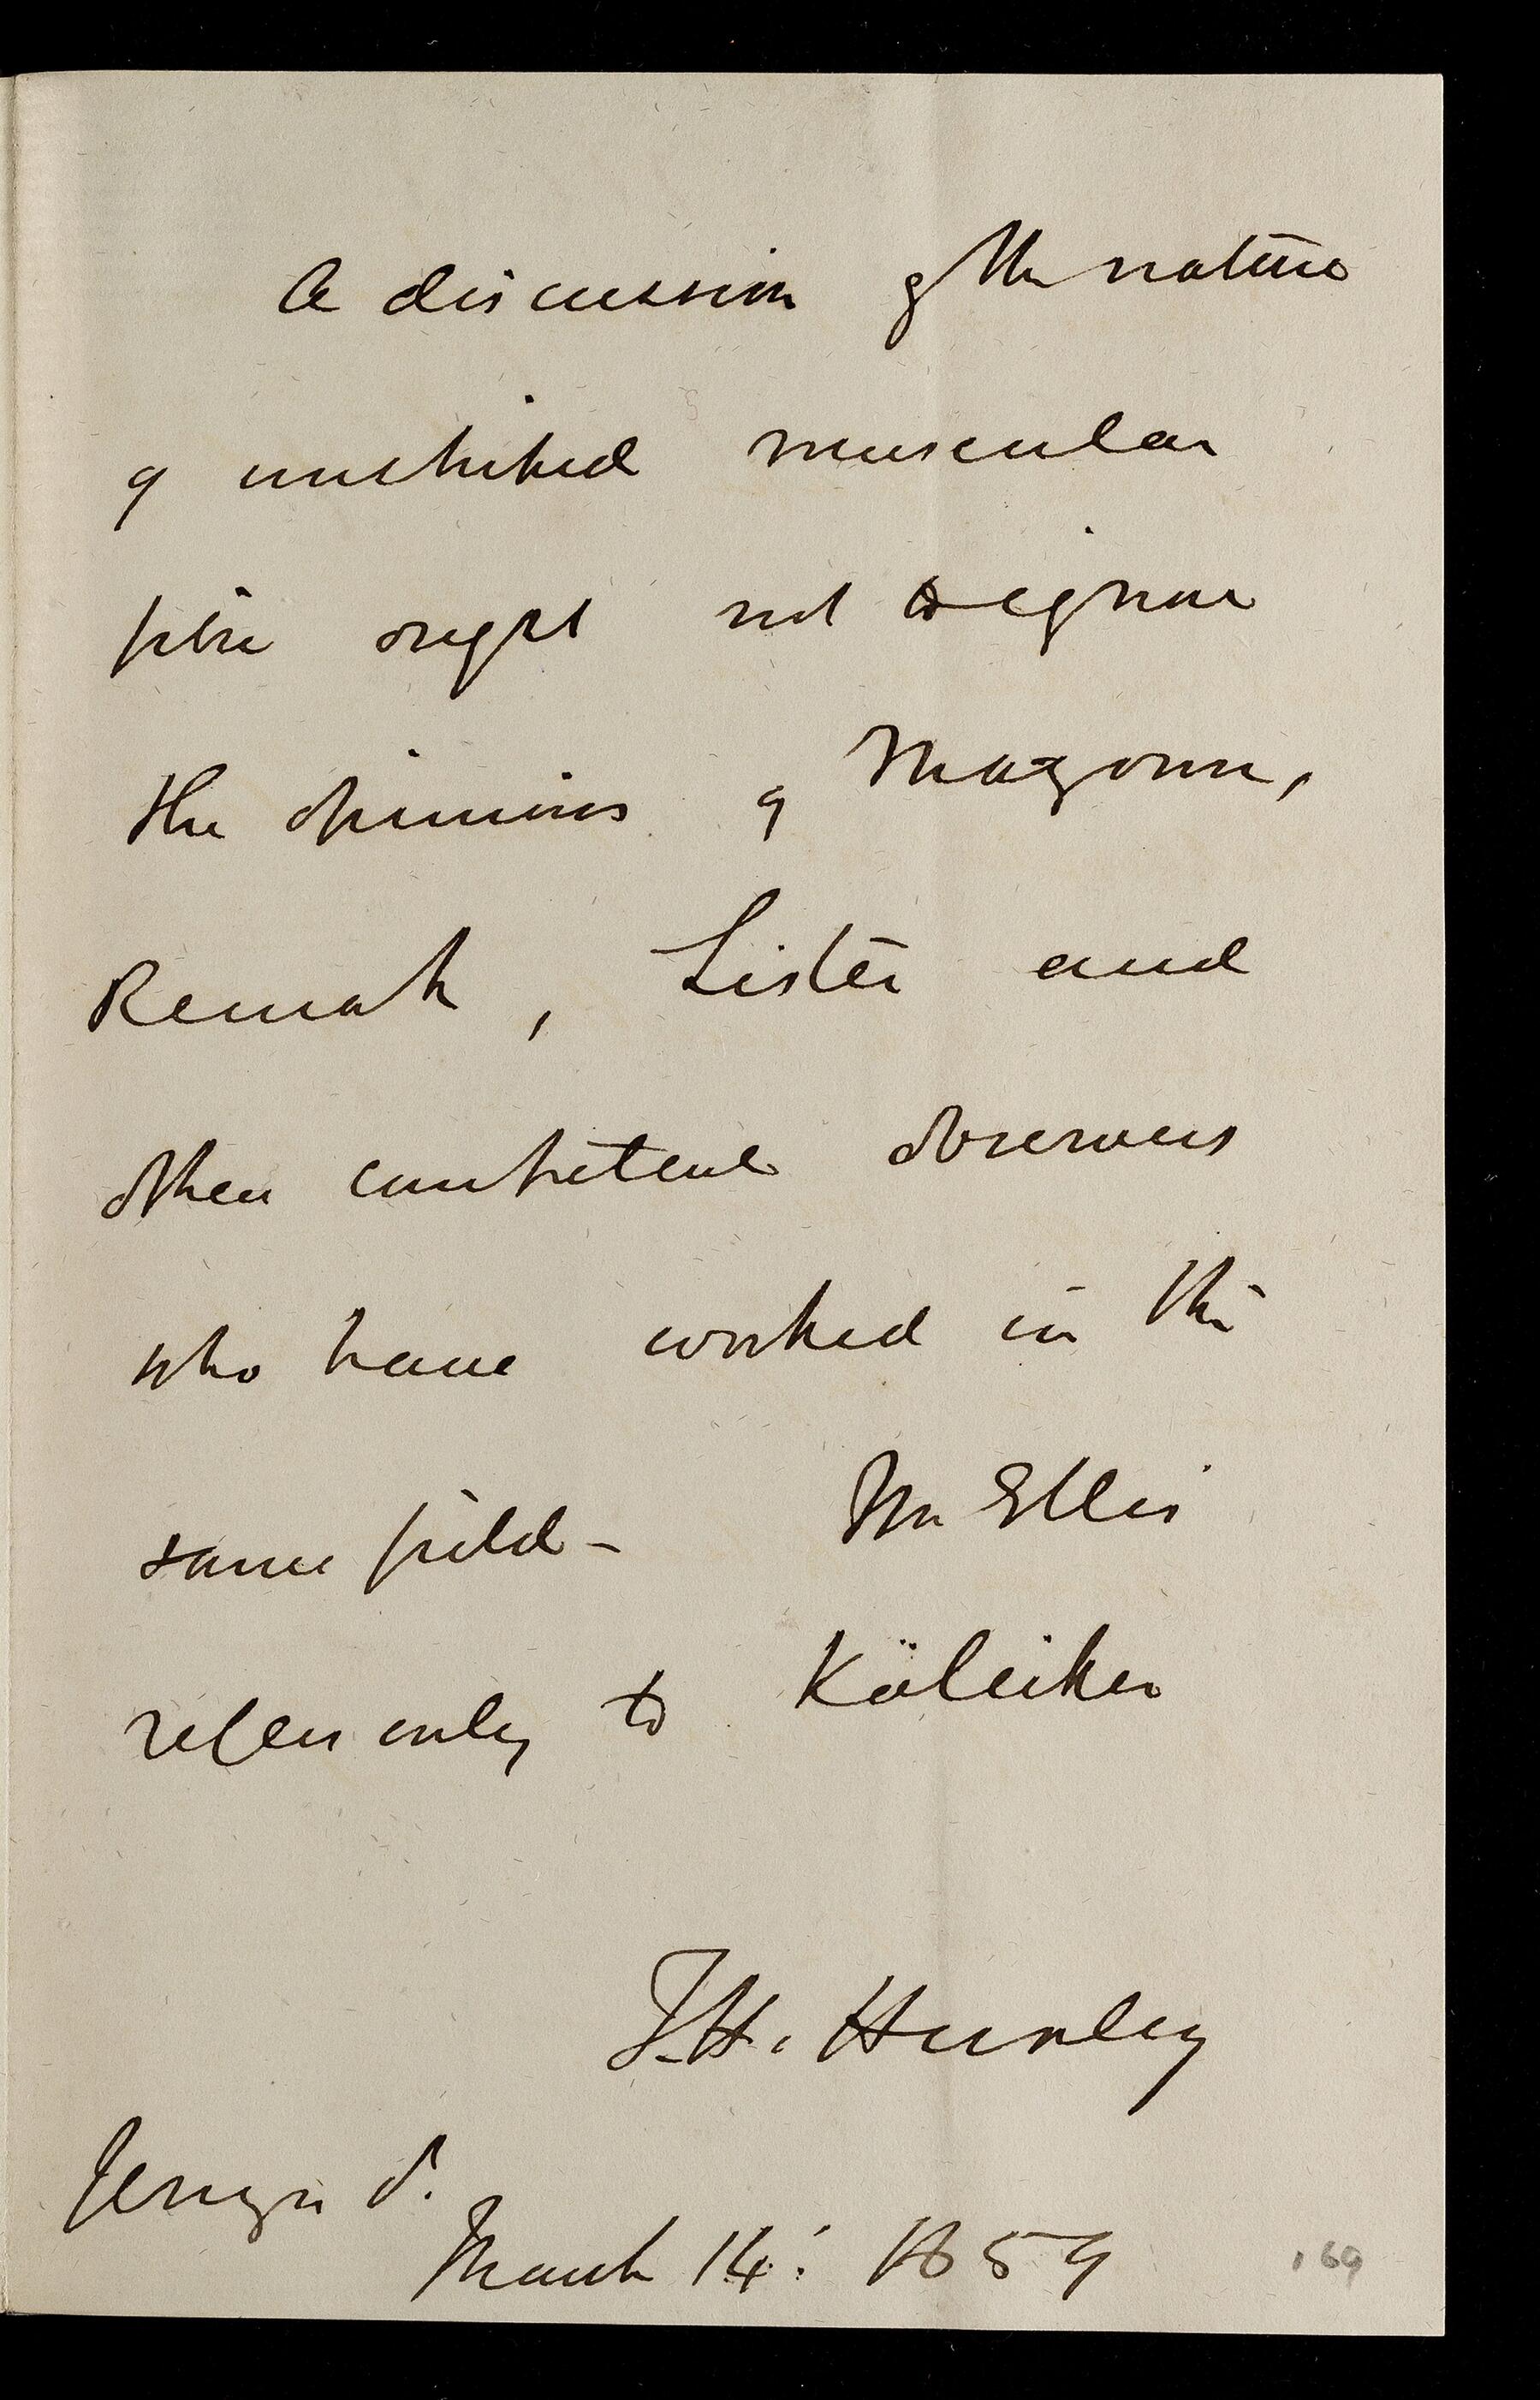 A discussion of the nature
of unstriped muscular
fibre ought not to ignore
the opinions of Mazonn,
Remak, Lister and
other competent observers
who have worked in the
same field –    Mr Ellis
refers only to Köleiker
T.H. Huxley
Jermyn St.
March 14th 1859
169